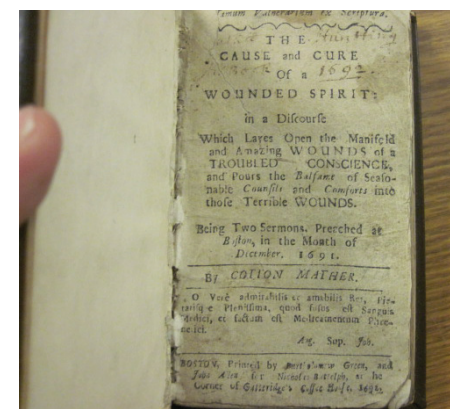 THE
CAUSE and CURE
Of a 1692.
WOUNDED SPIRIT:
in a Diſcourſe
Which Layes Open the Manifold
and Amazing WOUNDS of a
TROUBLED CONSCIENCE,
and Pours the Balſame of Seaſo-
nable Counſils and Comforts into
thoſe Terrible WOUNDS.
Being Two Sermons, Preached at
Boſton, in the Month of
December, 1691.
By COTTON MATHER.
O Verè admirabilis et amabilis Rex,
Plentiſſima, quod fuſus eſt Sanguis
Medici, et factum eſt Medicamentum Phre-
netici.
Aug. Sup. Joh.
BOSTON, Printed by Green, and
John Allen for Nicholas Buttolph, at the
Corner of Gutteridge's Coffee Houſe.